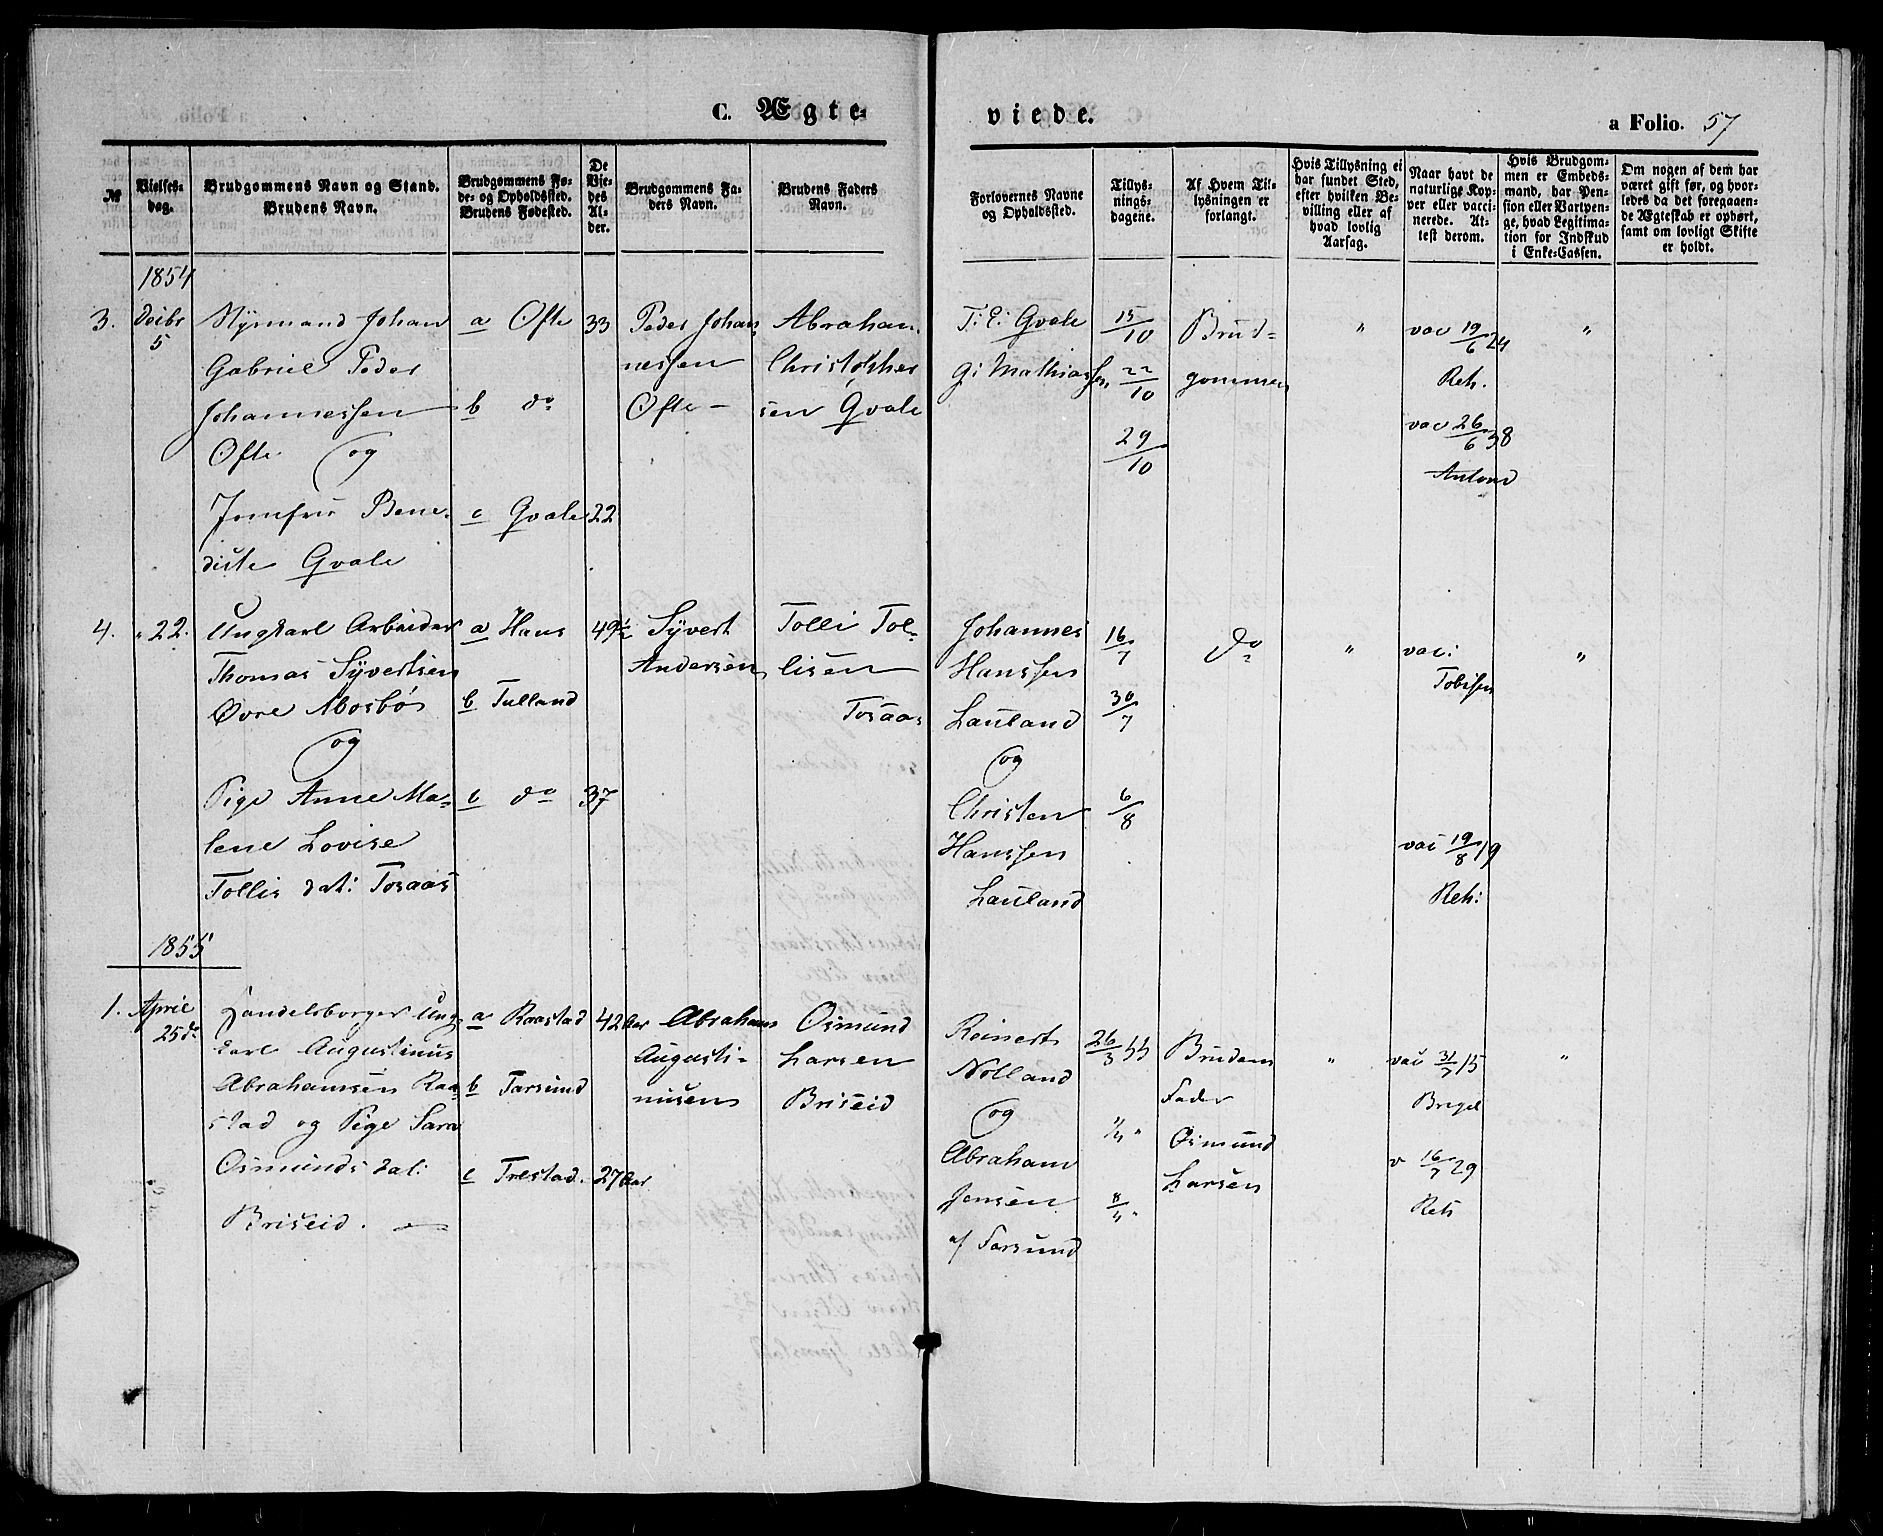 C. Ægte-
viede.
a Folio. 57
№
Vielses-
dag.
Brudgommens Navn og Stand.
Brudens Navn.
Brudgommens Fø-
de- og Opholdssted.
Brudens Fødested.
De
Vie-
des
Al-
der.
Brudgommens Fa-
ders Navn.
Brudens Faders
Navn.
Forlovernes Navne
og Opholdssted.
Tillys-
nings-
dagene.
Af Hvem Til-
lysningen er
forlangt.
Hvis Tillysning ei
har fundet Sted,
efter hvilken Be-
villing eller af
hvad lovlig
Aarsag.
Naar havt de
naturlige Kop-
per eller vacci-
nerede. At-
test derom.
Hvis Brudgom-
men er Embeds-
mand, har Pen-
sion eller Vartpen-
ge, hvad Legitima-
tion for Indskud
i Enke-Cassen.
Om nogen af dem har
været gift før, og hvor-
ledes da det foregaaen-
de Ægteskab er ophørt,
samt om lovligt Skifte
er holdt.
1854
3.
Decbr
5
Styrmand Johan
Gabriel Peder
Johannessen
Ofte og
Jomfru Bene-
dicte Gvale
a Ofte
b do
c Gvale
33
22
Peder Johan-
nessen
Ofte
Abraham
Christopher
sen Gvale
T. E. Gvale
G. Mathiassen
15/10
22/10
29/10
Brud-
gommen
"
vac 19/6 24
Reh.
vac 26/6 38
"
4.
" 22.
Ungkarl Arbeider
Thomas Syvertsen
Øvre Mosbø
og
Pige Anne Ma-
lene Lovise
Tollis dat: Tosaas
a Haus
b Tulland
c do
49½
37
Syvert
Andersen
Tolli Tol-
lisen
Tosaas
Johannes
Hanssen
Lauland
og
Christen
Hanssen
Lauland
16/7
30/7
6/8
do
"
vac:
Tobisen
vac 19/8 19
Reh:
"
1855
1.
April
25de
Handelsborger Ung
karl Augustinus
Abrahamsen Raa-
stad og Pige Sara
Osmunds dat:
Briseid.
a Raastad
b Farsund
c Trestad.
42 Aar
27 Aar
Abraham
Augusti-
nusen
Osmund
Larsen
Briseid
Reinert
Nolland
og
Abraham
Jensen
af Farsund
26/3 55
1/4 "
8/4 "
Brudens
Fader
Osmund
Larsen
"
vac 31/7 15
v 16/7 29
Reh
"